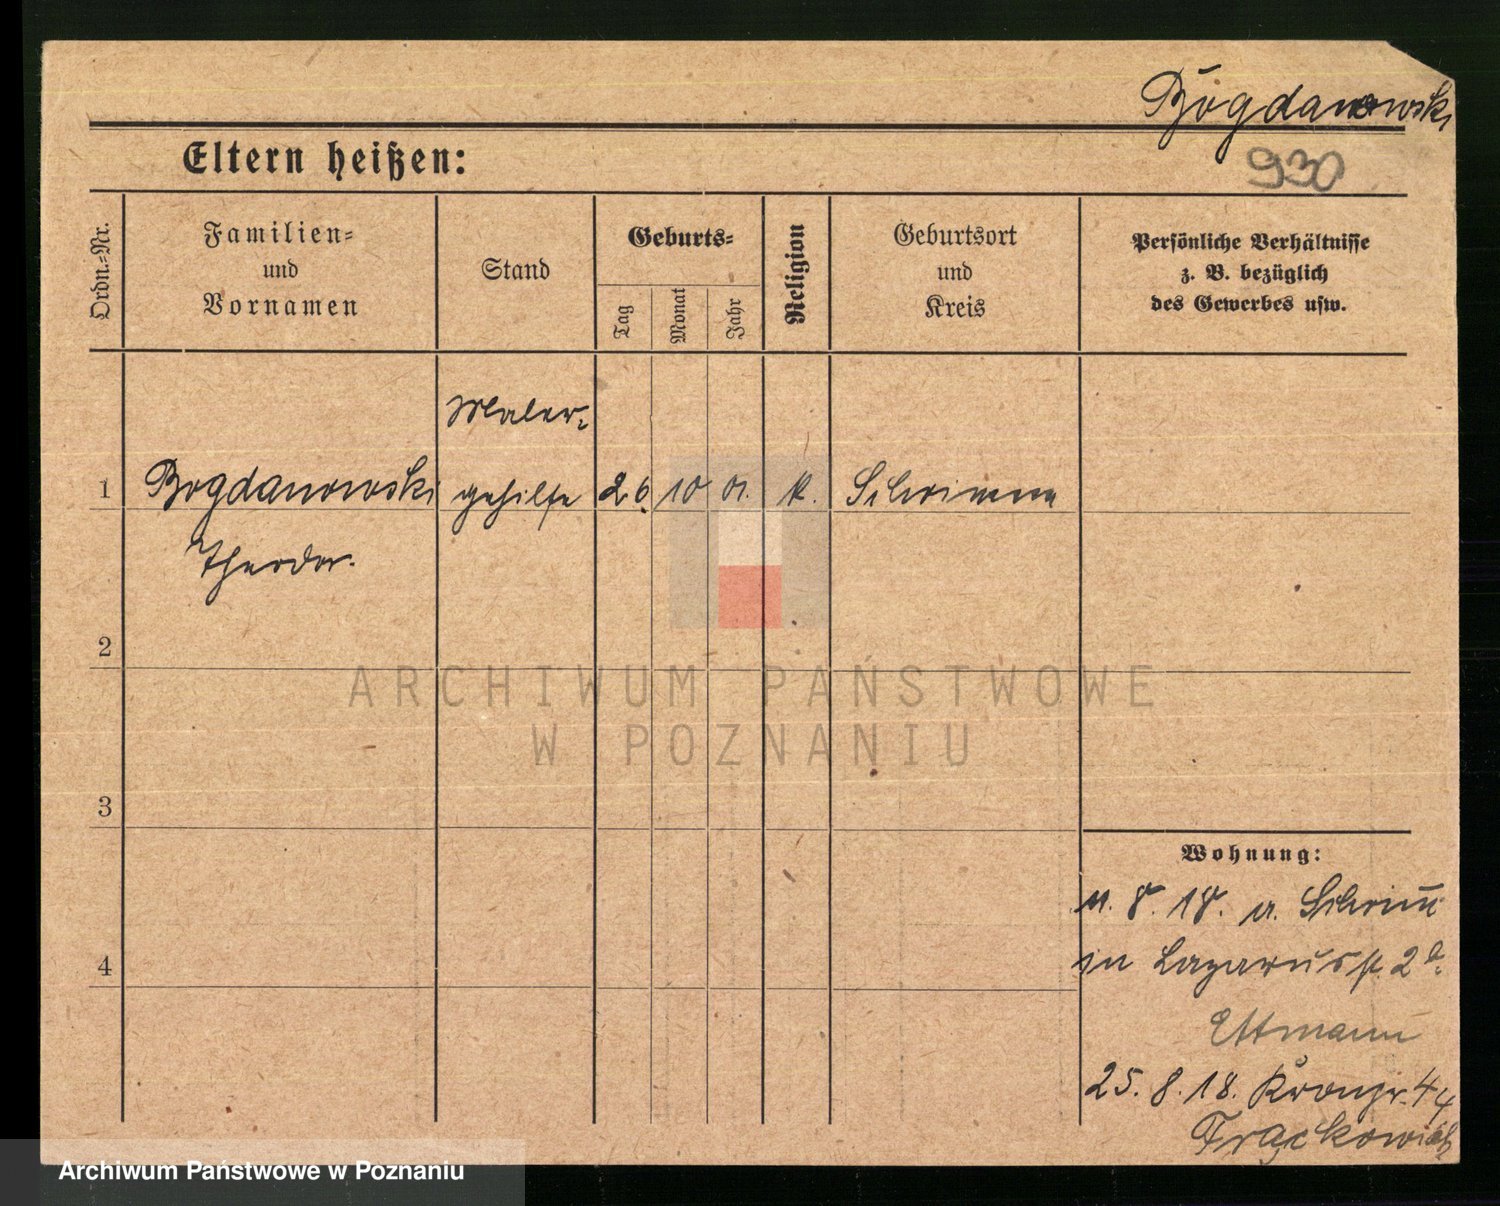 Bogdanowski
930
Eltern heißen:
Ordn.-Nr.
Familien-
und
Vornamen
Stand
Geburts-
Tag
Monat
Jahr
Religion
Geburtsort
und
Kreis
Persönliche Verhältnisse
z. B. bezüglich
des Gewerbes usw.
Maler-
1 Bogdanowski gehilfe 26. 10 01. k. Schrimm
Theodor.
2
ARCHIWUM PAŃSTWOWE
W POZNANIU
3
Wohnung:
8. 18. v. Schrimm
4
in Lazarusstr. 2a.
Ettmann
25. 8. 18. Kronpr. 44
Frąckowiak
Archiwum Państwowe w Poznaniu